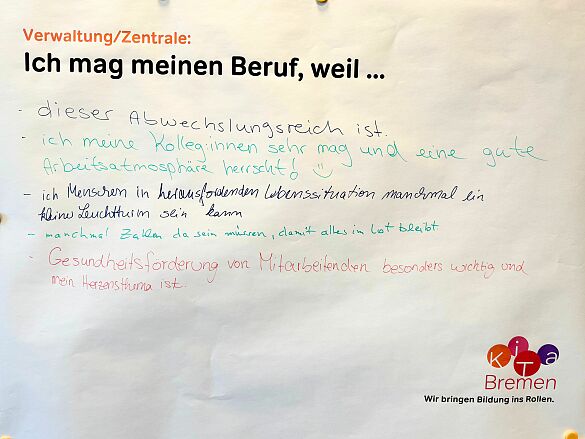 Verwaltung/Zentrale:
Ich mag meinen Beruf, weil ...
- dieser Abwechslungsreich ist.
- ich meine Kolleg:innen sehr mag und eine gute
Arbeitsatmosphäre herrscht! ☺
- ich Menschen in herausfordernden Lebenssituation manchmal ein
kleiner Leuchtturm sein kann
- manchmal Zahlen da sein müssen, damit alles im Lot bleibt
- Gesundheitsförderung von Mitarbeitenden besonders wichtig und
mein Herzensthema ist.
KiTa
Bremen
Wir bringen Bildung ins Rollen.